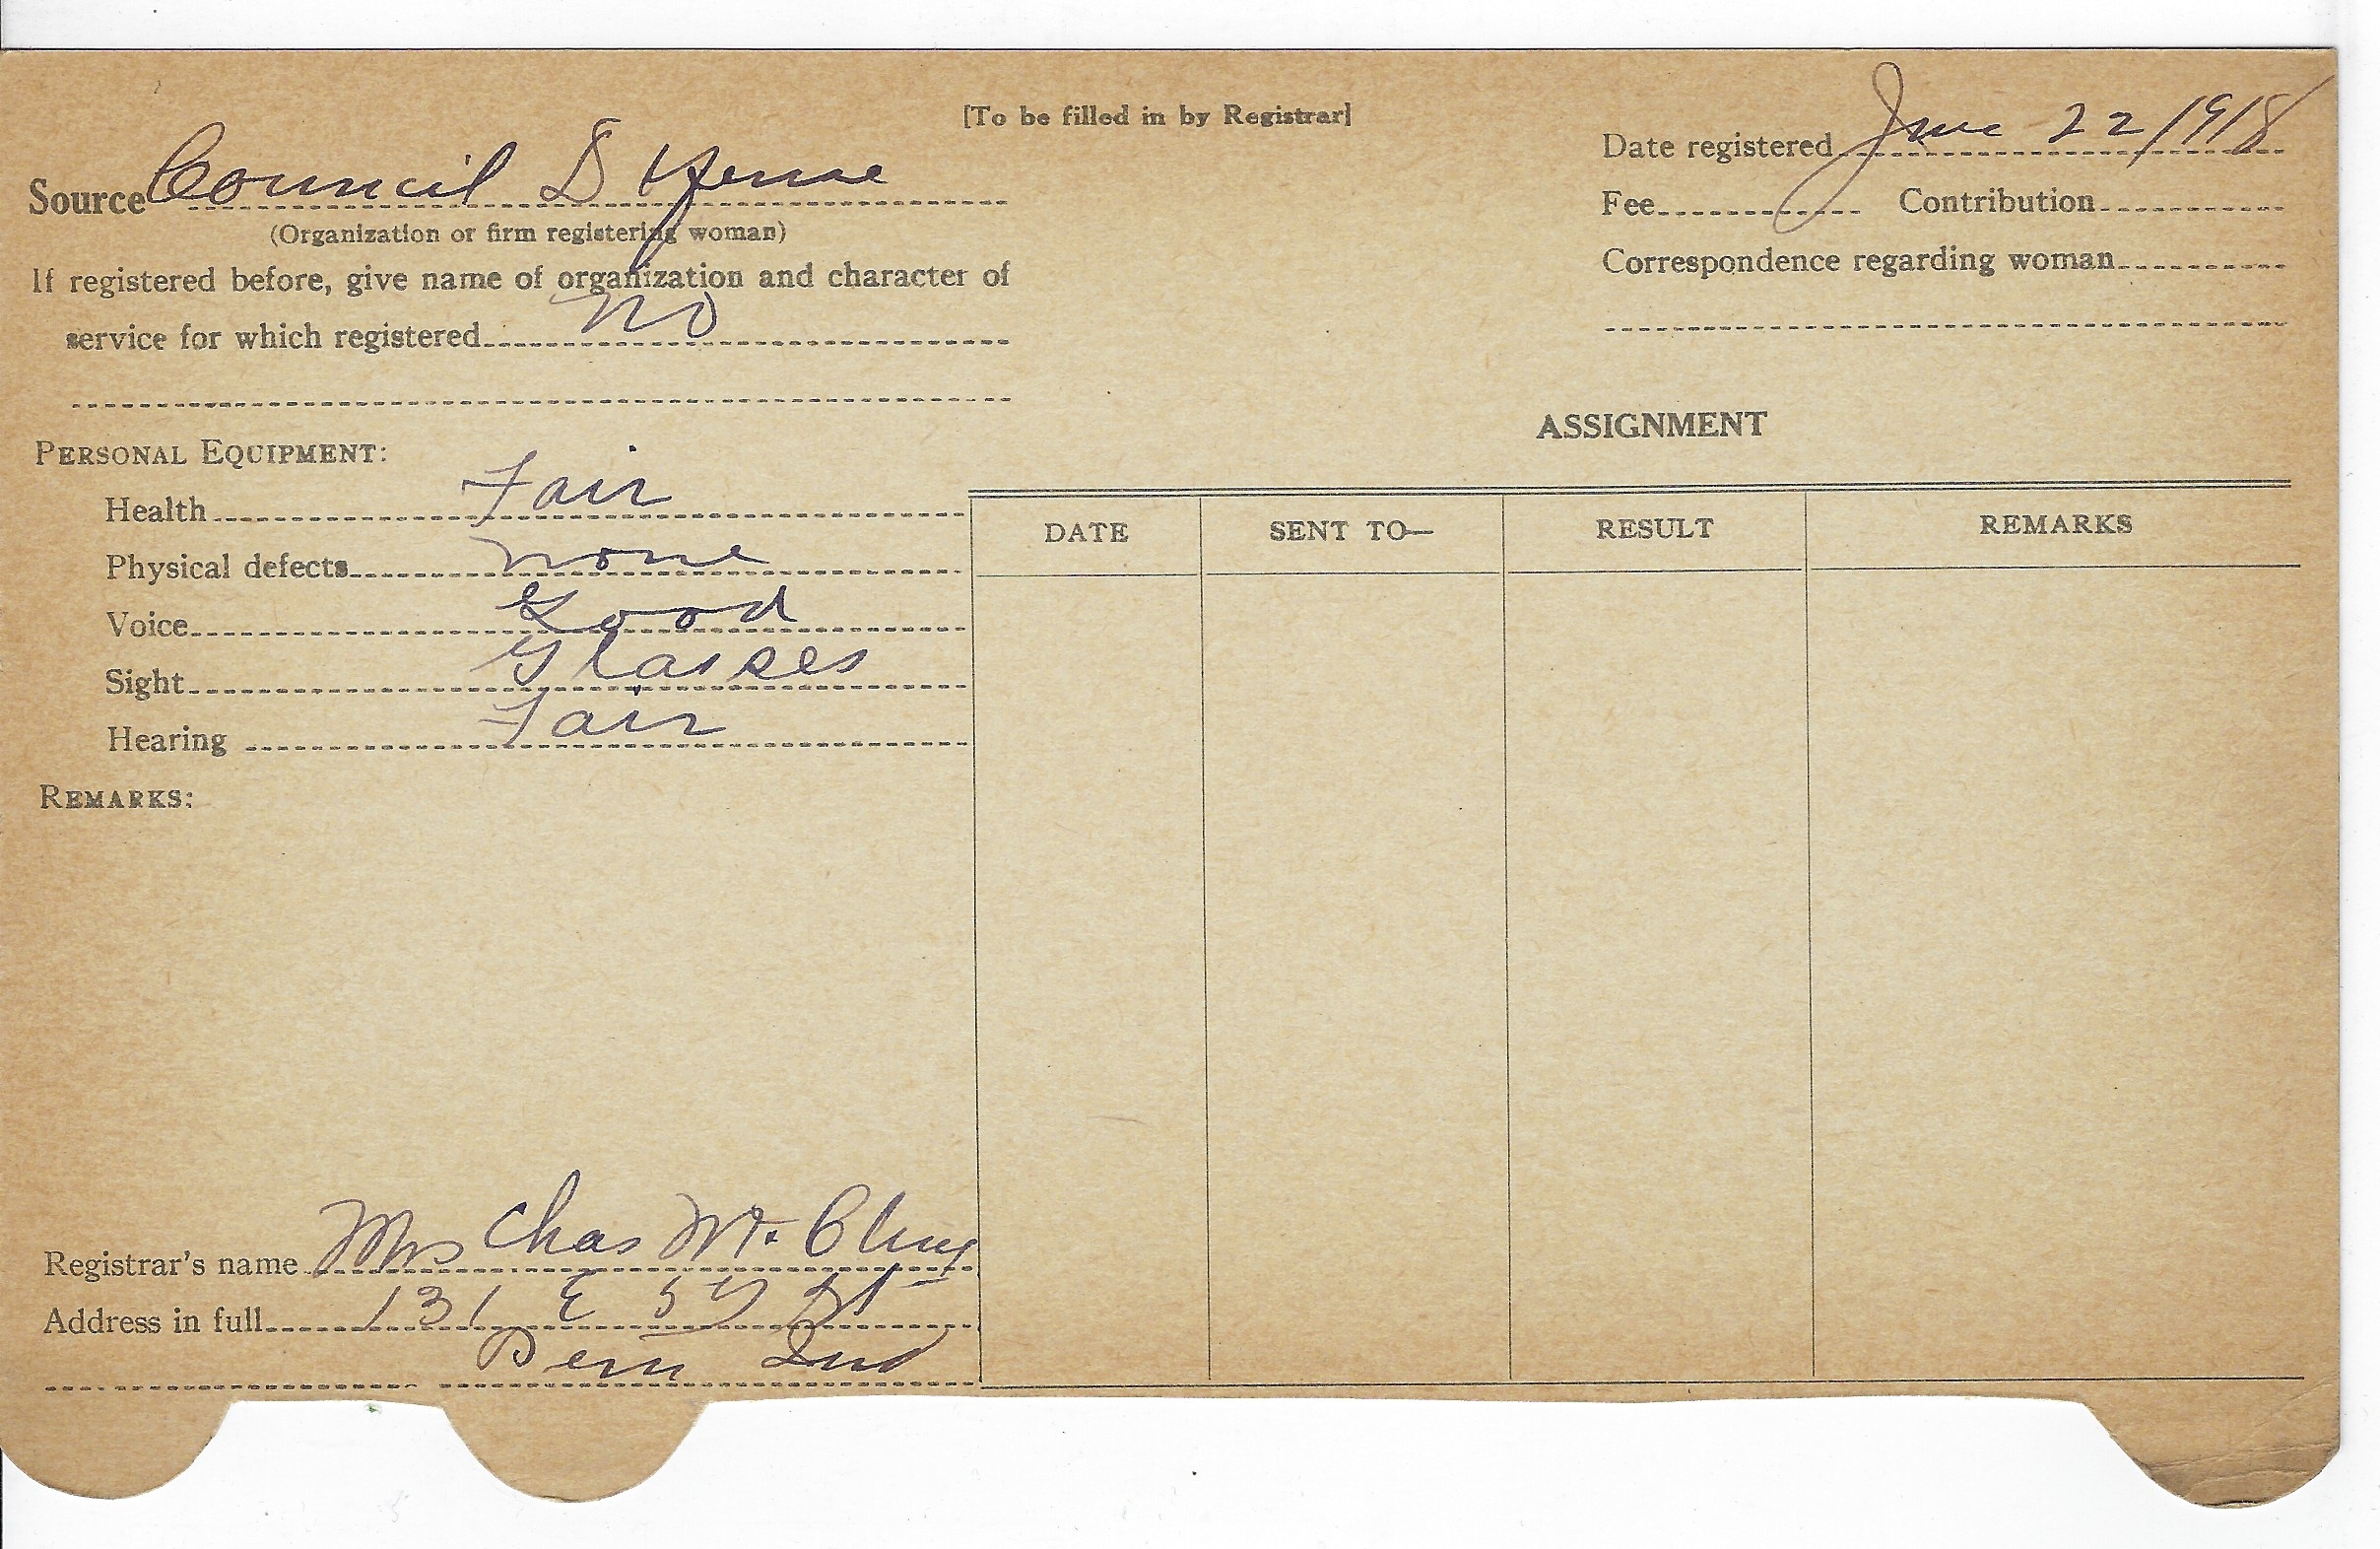 [To be filled in by Registrar]
Source Council Defense
(Organization or firm registering woman)
If registered before, give name of organization and character of
service for which registered no
Date registered June 22/1918
Fee Contribution
Correspondence regarding woman
PERSONAL EQUIPMENT:
Health Fair
Physical defects none
Voice Good
Sight Glasses
Hearing Fair
REMARKS:
ASSIGNMENT
DATE SENT TO— RESULT REMARKS
Registrar's name Mrs Chas
Address in full 131 E 5 St
Peru Ind